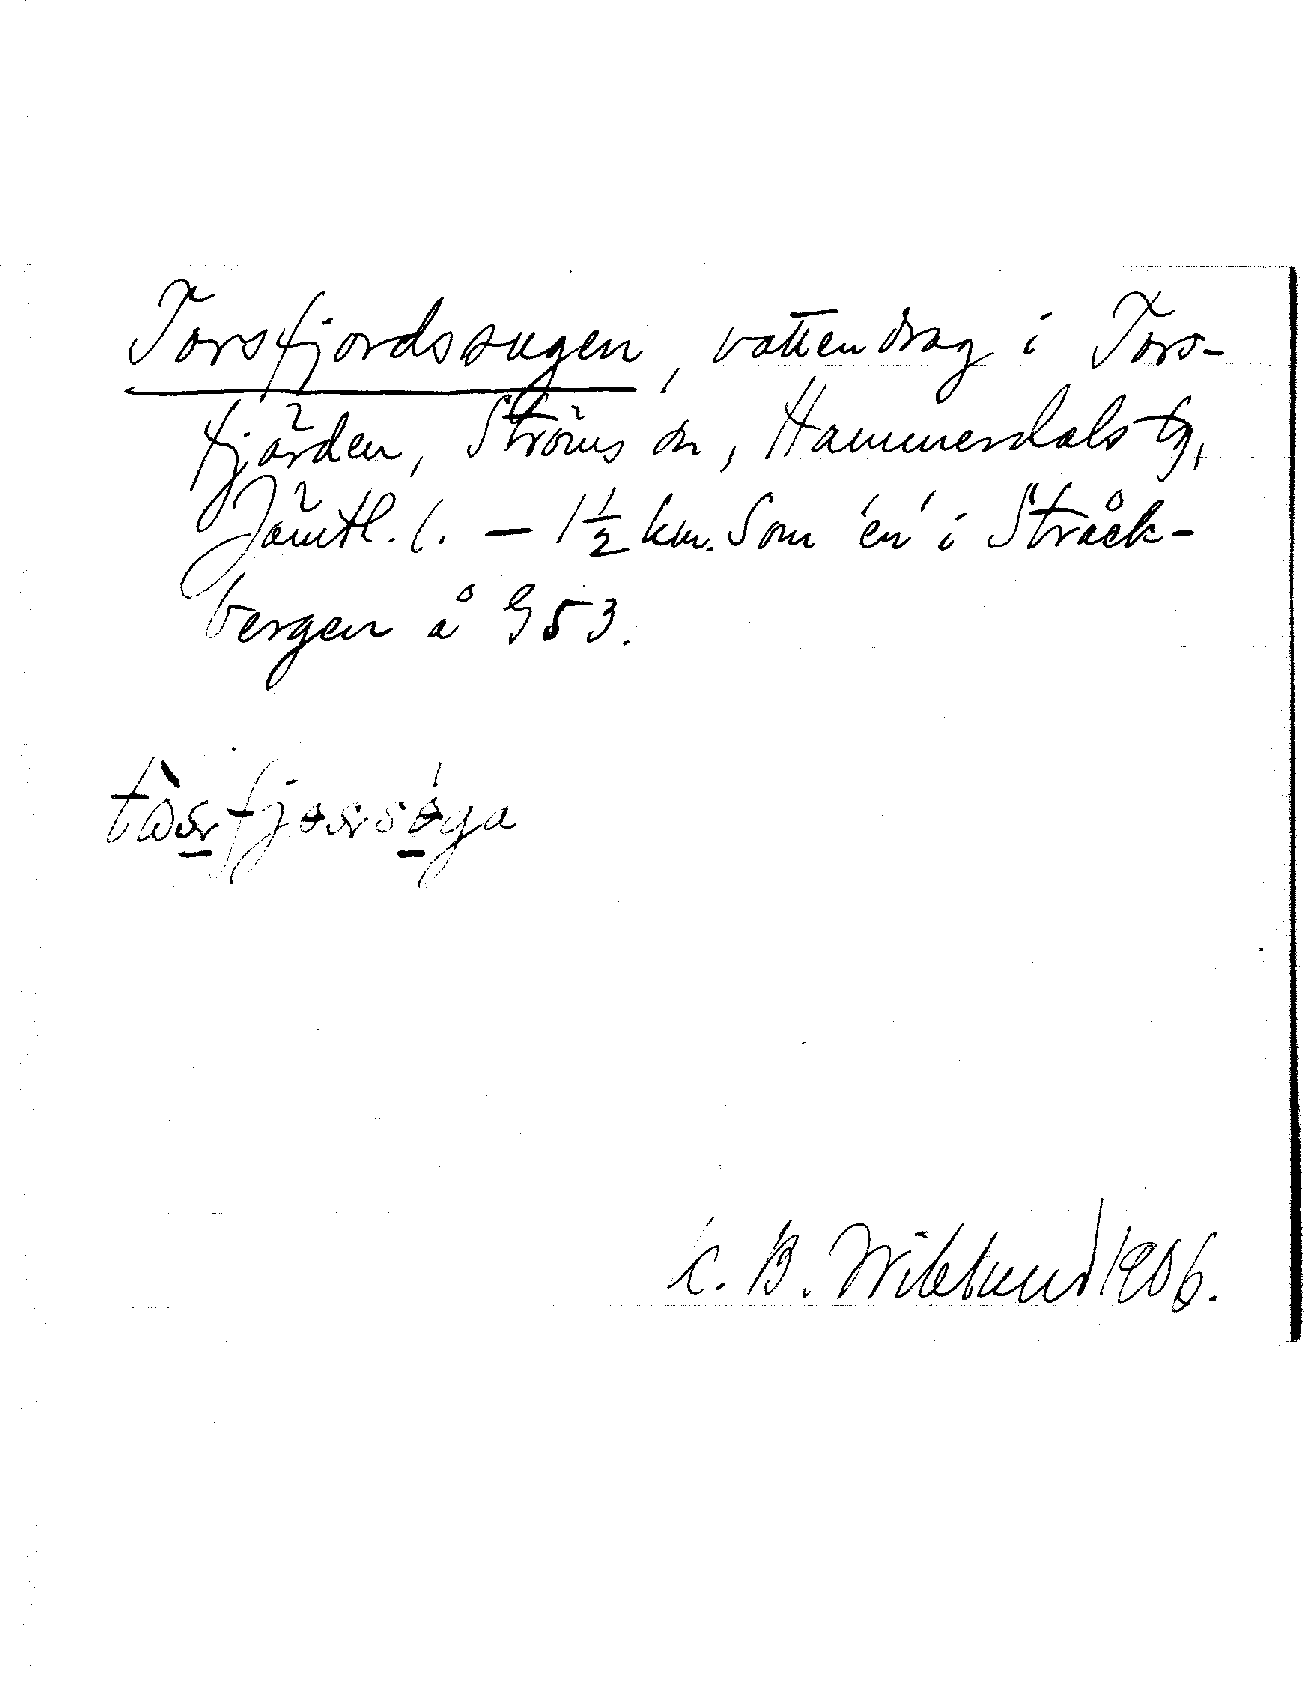 Torsfjordssugen, vattendrag i Tors-
fjärden, Ströms sn, Hammerdals tg,
Jämtl. l. – 1½ km. Som 'en' i Stråck-
bergen å G53.
K. B. Wiklund 1906.